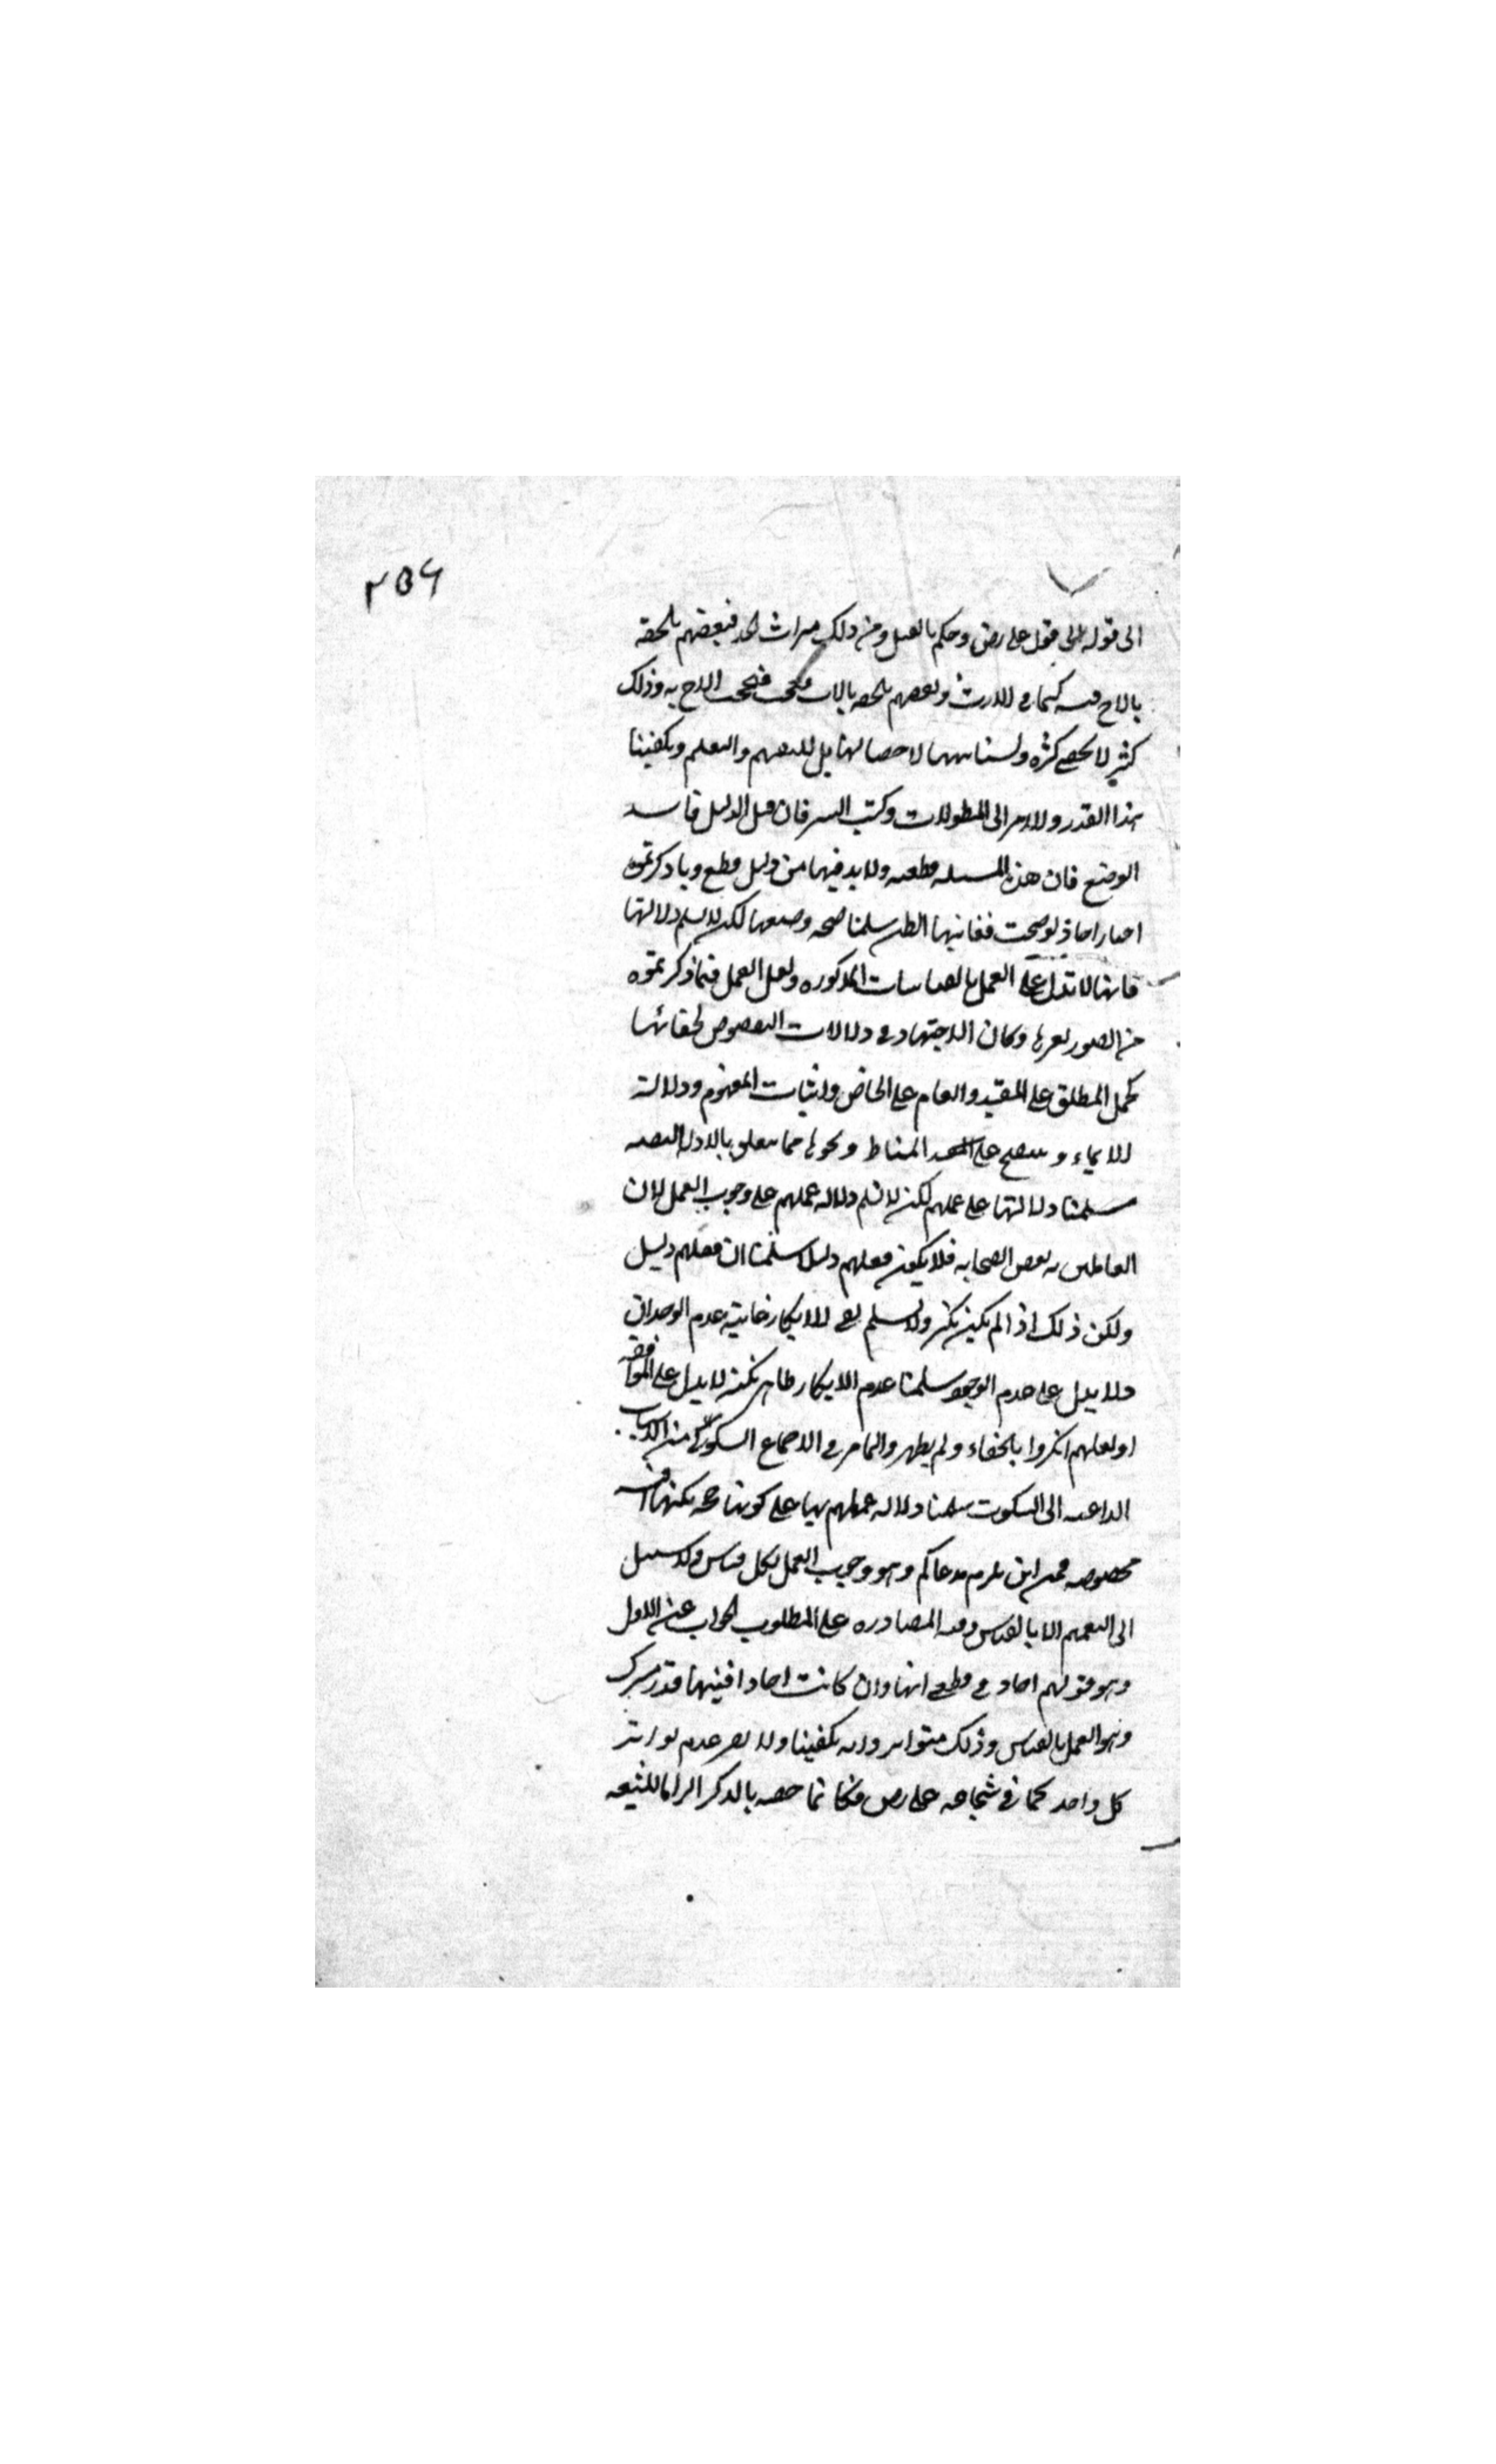 ٢٥٦
الى قوله الى قول على رض وحكم بالقتل ومن ذلك ميراث الجد فبعضهم يلحقه
بالاخ فيه كما في الارث وبعضهم يلحقه بالاب فيحجب الاخ به وذلك
كثير لا يحصى كثرة ولسنا ههنا لاحصائها بل للتفهيم والتعلم ويكفينا
هذا القدر والامر الى المطولات وكتب السير فان قيل الدليل فاسد
الوضع فان هذه المسئله قطعيه ولا بد فيها من دليل قطع وما ذكرتموه
اخبار احاد لو صحت فغايتها الظن سلمنا صحه وضعها لكن لا نسلم دلالتها
فانها لا تدل على العمل بالقياسات المذكوره ولعل العمل فيما ذكرتموه
من الصور بغيرها وكان الاجتهاد في دلالات النصوص لخفائها
كحمل المطلق على المقيد والعام على الخاص واثبات المفهوم ودلالة
الايماء و على المناط ونحوها مما يتعلق بالادلة النصيه
سلمنا دلالتها على عملهم لكن لا نسلم دلاله عملهم على وجوب العمل لان
العاملين به بعض الصحابه فلا يكون فعلهم دليلا سلمنا ان فعلهم دليل
ولكن ذلك اذا لم يكن نكير ولا نسلم نفى الانكار غايته عدم الوجدان
ولا يدل على عدم الوجود سلمنا عدم الانكار ظاهرا لكنه لا يدل على الموافقه
اذ لعلهم انكروا بالخفاء ولم يظهر والما مر في الاجماع السكوتى من الاسباب
الداعيه الى السكوت سلمنا دلاله عملهم بها على كونها حجه لكنها اقيسه
مخصوصه فمن اين يلزم مدعاكم وهو وجوب العمل بكل قياس ولا سبيل
الى التعميم الا بالقياس وفيه المصادره على المطلوب الجواب عن الاول
وهو قولهم احاد في قطعى انها وان كانت احادا فبينها قدر مشترك
وهو العمل بالقياس وذلك متواتر وانه يكفينا ولا يضر عدم تواتر
كل واحد كما في شجاعه على رض فكانما خصه بالذكر الزاما للشيعه